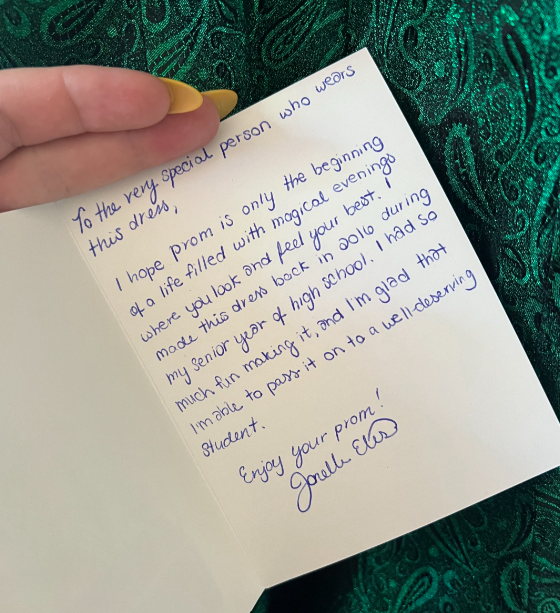 To the very special person who wears
this dress,
I hope prom is only the beginning
of a life filled with magical evenings
where you look and feel your best. I
made this dress back in 2016 during
my senior year of high school. I had so
much fun making it, and I'm glad that
I'm able to pass it on to a well-deserving
student.
Enjoy your prom!